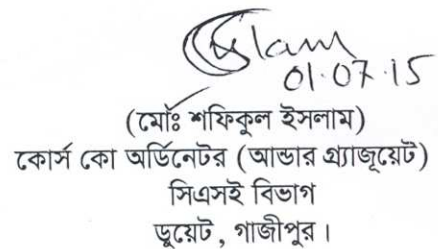 01.07.15
(মোঃ শফিকুল ইসলাম)
কোর্স কো অর্ডিনেটর (আন্ডার গ্র্যাজূয়েট)
সিএসই বিভাগ
ডুয়েট , গাজীপুর।